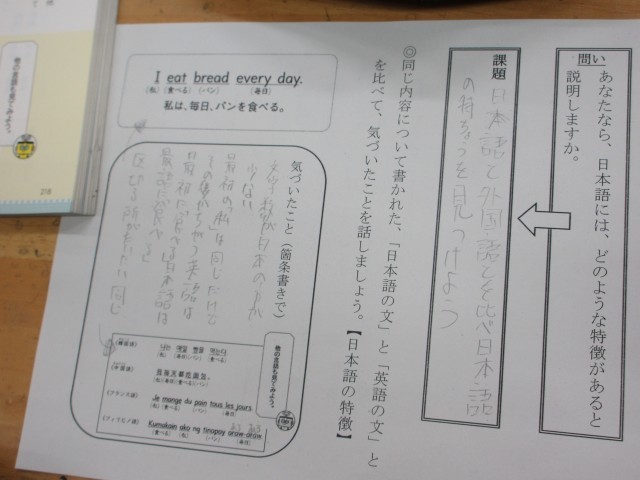 問い
あなたなら、日本語には、どのような特徴があると
説明しますか。
課題
日本語と外国語とを比べ日本語
の特ちょうを見つけよう
◎同じ内容について書かれた、「日本語の文」と「英語の文」と
を比べて、気づいたことを話しましょう。【日本語の特徴】
I eat bread every day.
(私) (食べる) (パン) (毎日)
私は、毎日、パンを食べる。
気づいたこと(箇条書きで)
文字数が日本の方が
少ない
最初の「私」は同じだけど
その後がちがう英語は
最初に食べる日本語は
最後に食べる
区切る所がだいたい同じ
他の言語も見てみよう。
(韓国語)
나는 매일 빵을 먹는다
(私) (毎日) (パン) (食べる)
(中国語)
我每天都吃面包。
(私) (毎日) (食べる) (パン)
(フランス語)
Je mange du pain tous les jours.
(私) (食べる) (パン) (毎日)
(フィリピノ語)
Kumakain ako ng tinapay araw-araw
(食べる) (私) (パン) (毎日)
他の言語も見てみよう。
218